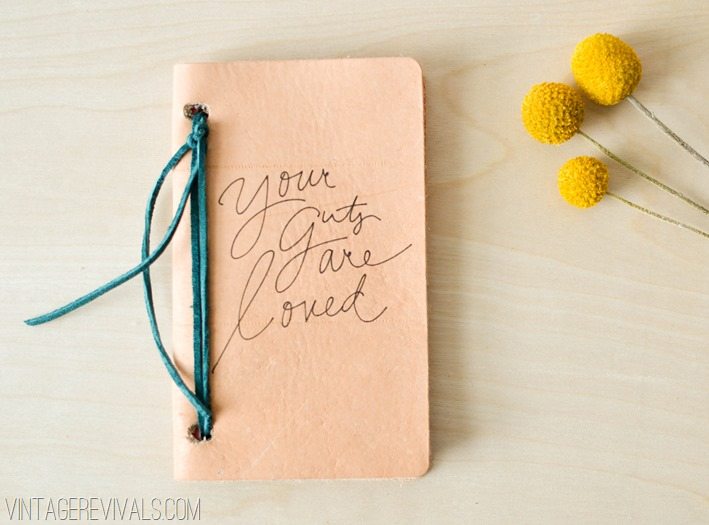 Your
Guts
are
loved
VINTAGEREVIVALS.COM